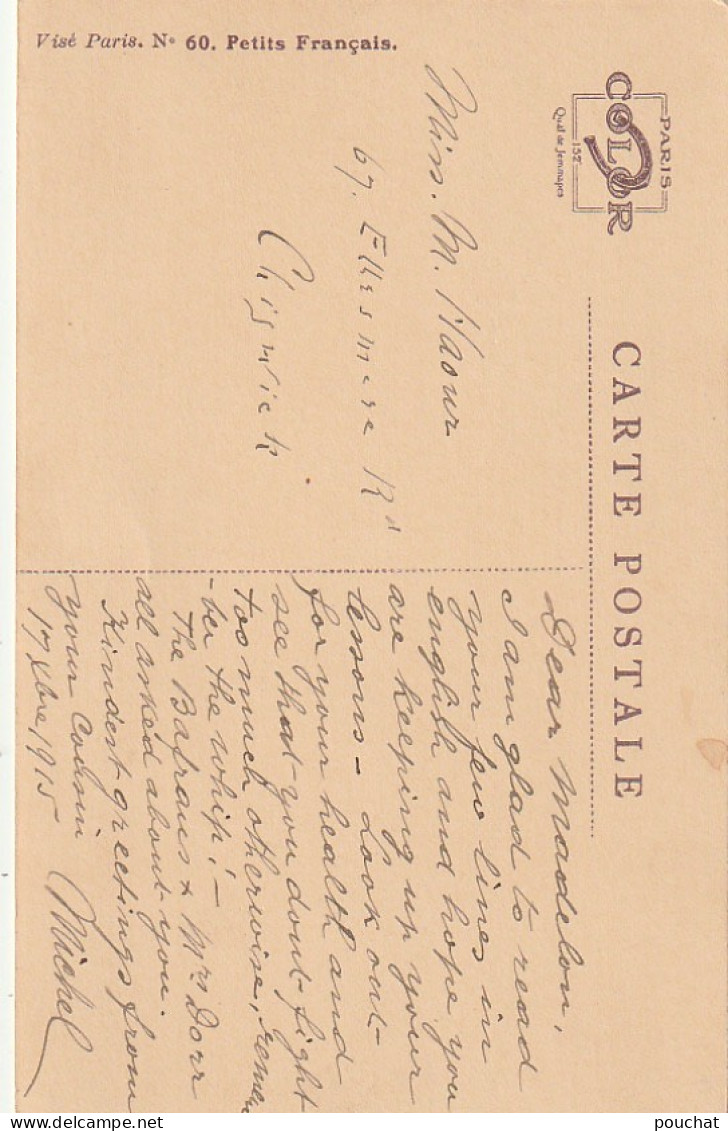 Visé Paris. Nº 60. Petits Français.
PARIS
COLOR
152
Quai de Jemmapes
CARTE POSTALE
Miss. M. Haour
67. Ellesmere Rd
Chiswick
Dear Madelon,
I am glad to read
your few lines in
english and hope you
are keeping up your
lessons - Look out
for your health and
see that you dont fight
too much otherwise, remem
-ber the whip! -
The Bafraus & Mrs Dorr
all asked about you.
Kindest greetings from
your Cousin Michel
17 Xbre 1915
pouchat
delcampe.net